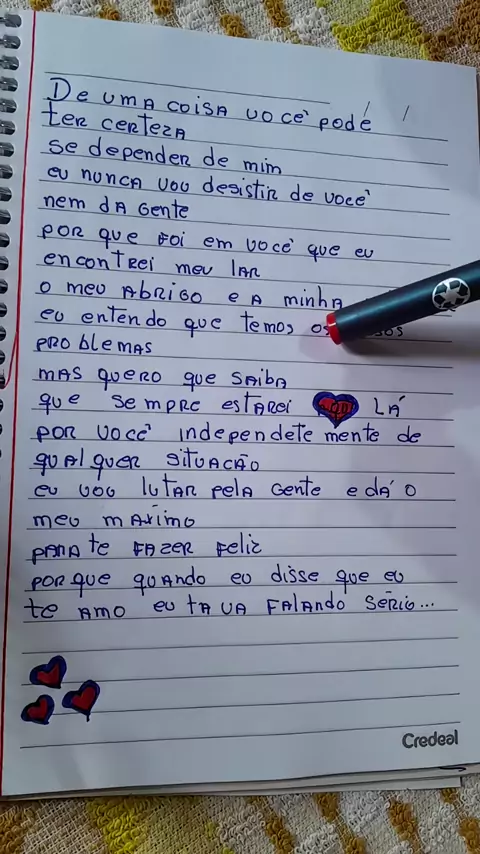 De uma coisa você pode
ter certeza
se depender de mim
eu nunca vou desistir de você
nem da gente
por que foi em você que eu
encontrei meu lar
o meu abrigo e a minha
eu entendo que temos
problemas
mas quero que saiba
que sempre estarei lá
por você independete mente de
qualquer situacão
eu vou lutar pela gente e dá o
meu máximo
para te fazer feliz
porque quando eu disse que eu
te amo eu ta va falando sério...
Credeal